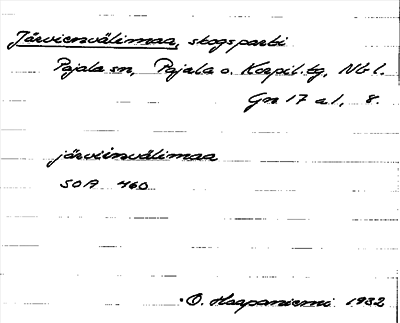 Järvienvälimaa, skogsparti
Pajala sn, Pajala o. Korpil. tg, Nbl.
Gn 17 a 1, 8.
järviinvälimaa
SOA 460
O. Haapaniemi 1932